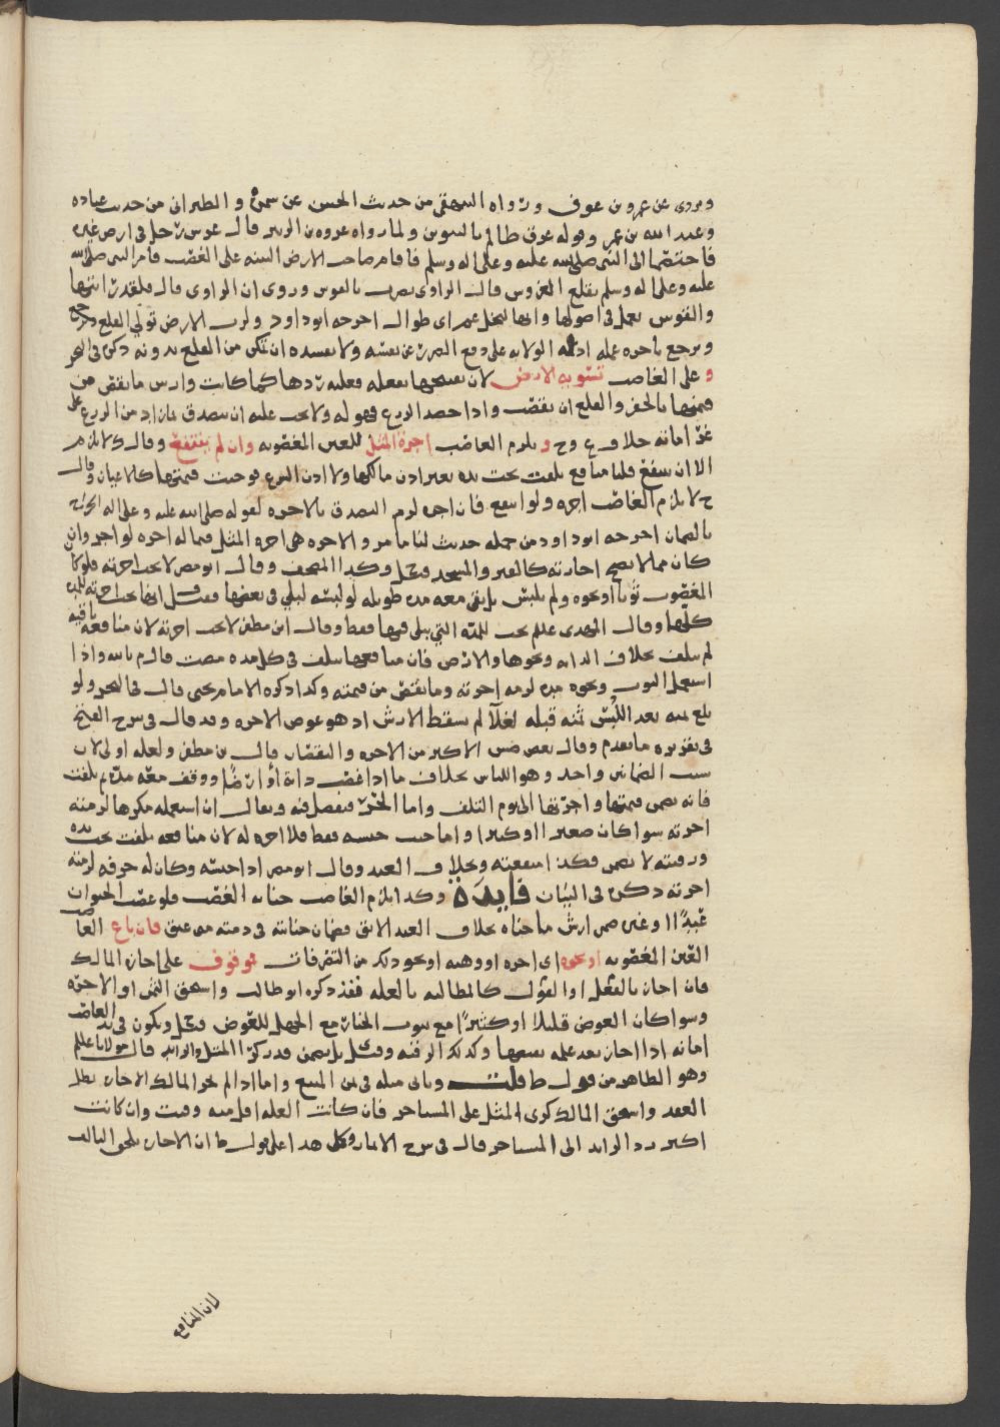 ويروى عن عمرو بن عوف ورواه البيهقي من حديث الحسن عن سمرة والطبراني من حديث عباده
وعبد الله بن عمر وقوله عرق ظالم بالتنوين ولما رواه عروه بن الزبير قال غرس رجل في ارض غيره
فاختصما الى النبي صلى الله عليه وعلى اله وسلم فاقام صاحب الارض البينه على الغصب فامر النبي صلى الله
عليه وعلى اله وسلم بقلع الغروس قال الراوي يضرب بالفوس وروى ان الراوي قال فلقد رايتها
والفوس يعمل في اصولها وانها لنخل عم اي طوال اخرجه ابو داود ولرب الارض تولي القلع
ويرجع باجره عمله اذ له الولايه على دفع الضرر عن نفسه ولا يفسده ان تمكن من القلع بدونه ذكره في البحر
و على الغاصب تسويه الارض لان نقصها بفعله فعليه ردها كما كانت وارش ما نقص من
قيمتها بالحفر والقلع ان نقصت واذا حصد الزرع فهو له ولا يجب عليه ان يتصدق بما زاد من الزرع على
غرامته خلاف ع وح و يلزم الغاصب اجرة المثل للعين المغصوبه وان لم ينتفع وقال ك لا يلزم
الا ان ينتفع قلنا منافع تلفت تحت يده بغير اذن مالكها ولا اذن الشرع فوجبت قيمتها كالاعيان وقال
ح لا يلزم الغاصب اجره ولو انتفع فان اجره لزم التصدق بالاجره لقوله صلى الله عليه وعلى اله الخراج
بالضمان اخرجه ابو داود من جمله حديث لنا ما مر والاجره هي اجره المثل فيما له اجره لو اجر وان
كان مما لا يصح اجارته كالقبر والمسجد وكذا المصحف وقال ابو مضر لا يجب اجرته فلو كان
المغصوب ثوبا او نحوه ولم يلبس بل بقي معه مده طويله لو لبسه لبلي في بعضها فقيل ايضا يجب اجرته للمده
كلها وقال المهدي عللم يجب للمده التي يبلى فيها فقط وقال ابن مظفر لا يجب اجرته لان منافعه باقيه
لم يتلف بخلاف الدابه ونحوها والارض فان منافعها يتلف في كل مده مضت قال م بالله واذا
استعمل الثوب ونحوه مده لزمه اجرته وما نقص من قيمته وكذا ذكره الامام يحيى قال في البحر ولو
بلغ ثمنه بعد اللبس ثمنه قبله لغلآ لم يسقط الارش اذ هو عوض الاجره وقد قال في شرح الفتح
في تقريره ما تقدم وقال بعض ضمن الاكثر من الاجره والنقصان قال بن مظفر ولعله اولى لان
سبب الضمانين واحد وهو اللباس بخلاف ما اذا غصب دابة او ارضًا ووقف معه مدة ثم تلفت
فانه يضمن قيمتها واجرتها الى يوم التلف واما الحر فيفصل فيه ويقال ان استعمله مكرها لزمته
اجرته سوا كان صغيرا او كبيرا واما حيث حبسه فقط فلا اجره له لان منافعه تلفت تحت يده
ورقبته لا تضمن فكذا منفعته وبخلاف العبد وقال ابو مضر اذا حبسه وكان له حرفه لزمته
اجرته ذكره في البيان فايدة وكذا يلزم الغاصب جنايه الغصب فلو غصب الحيوان
عبدًا او غيره ضمن ارش ما جناه بخلاف العبد الابق فضمان جنايته في ذمته متى عتق فان باع الغاصب
العين المغصوبه او نحوه اي اجره او وهبه او نحو ذلك من التصرفات فموقوف على اجازه المالك
فان اجاز بالفعل او القول كالمطالبه بالعله فقد ذكره ابو طالب واستحق الثمن او الاجرة
وسوا كان العوض قليلا او كثيرًا مع ثبوت الخيار مع الجهل للعوض وقيل ويكون في يد الغاصب
امانه اذا اجاز بعد علمه ببيعها وكذلك الرقبه وقيل بل يضمن قدر كرا المثل والزايد قال مولانا عللم
وهو الظاهر من قول ط قلت وياتي مثله في ثمن المبيع واما اذا لم يجز المالك الاجاره بطل
العقد واستحق المالك كرى المثل على المستاجر فان كانت العله اقل منه وفيت وان كانت
اكثر رد الزايد الى المستاجر قال في شرح الاثمار وكل هذا على قول ط ان الاجازه تلحق التالف
لان المنافع